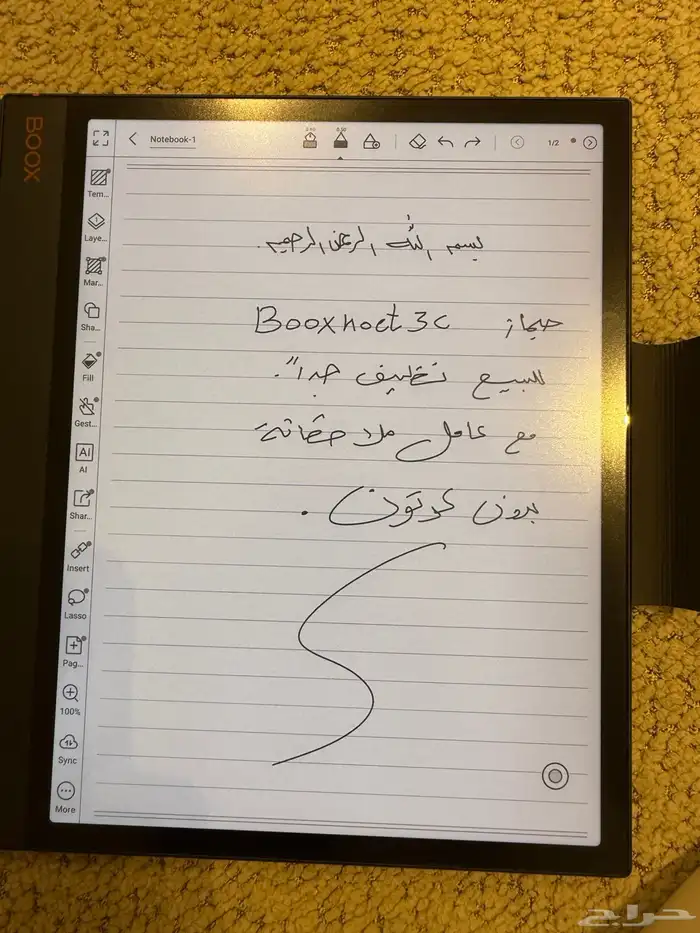 BOOX
Notebook-1
1/2
Tem...
Laye...
Mar...
Sha...
Fill
Gest...
AI
AI
Shar...
Insert
Lasso
Pag...
100%
Sync
More
بسم الله الرحمن الرحيم.
جهاز Boox noet 3c
للبيع نظيف جداً.
مع كامل ملاحقاته
بدون كرتون.
حراج